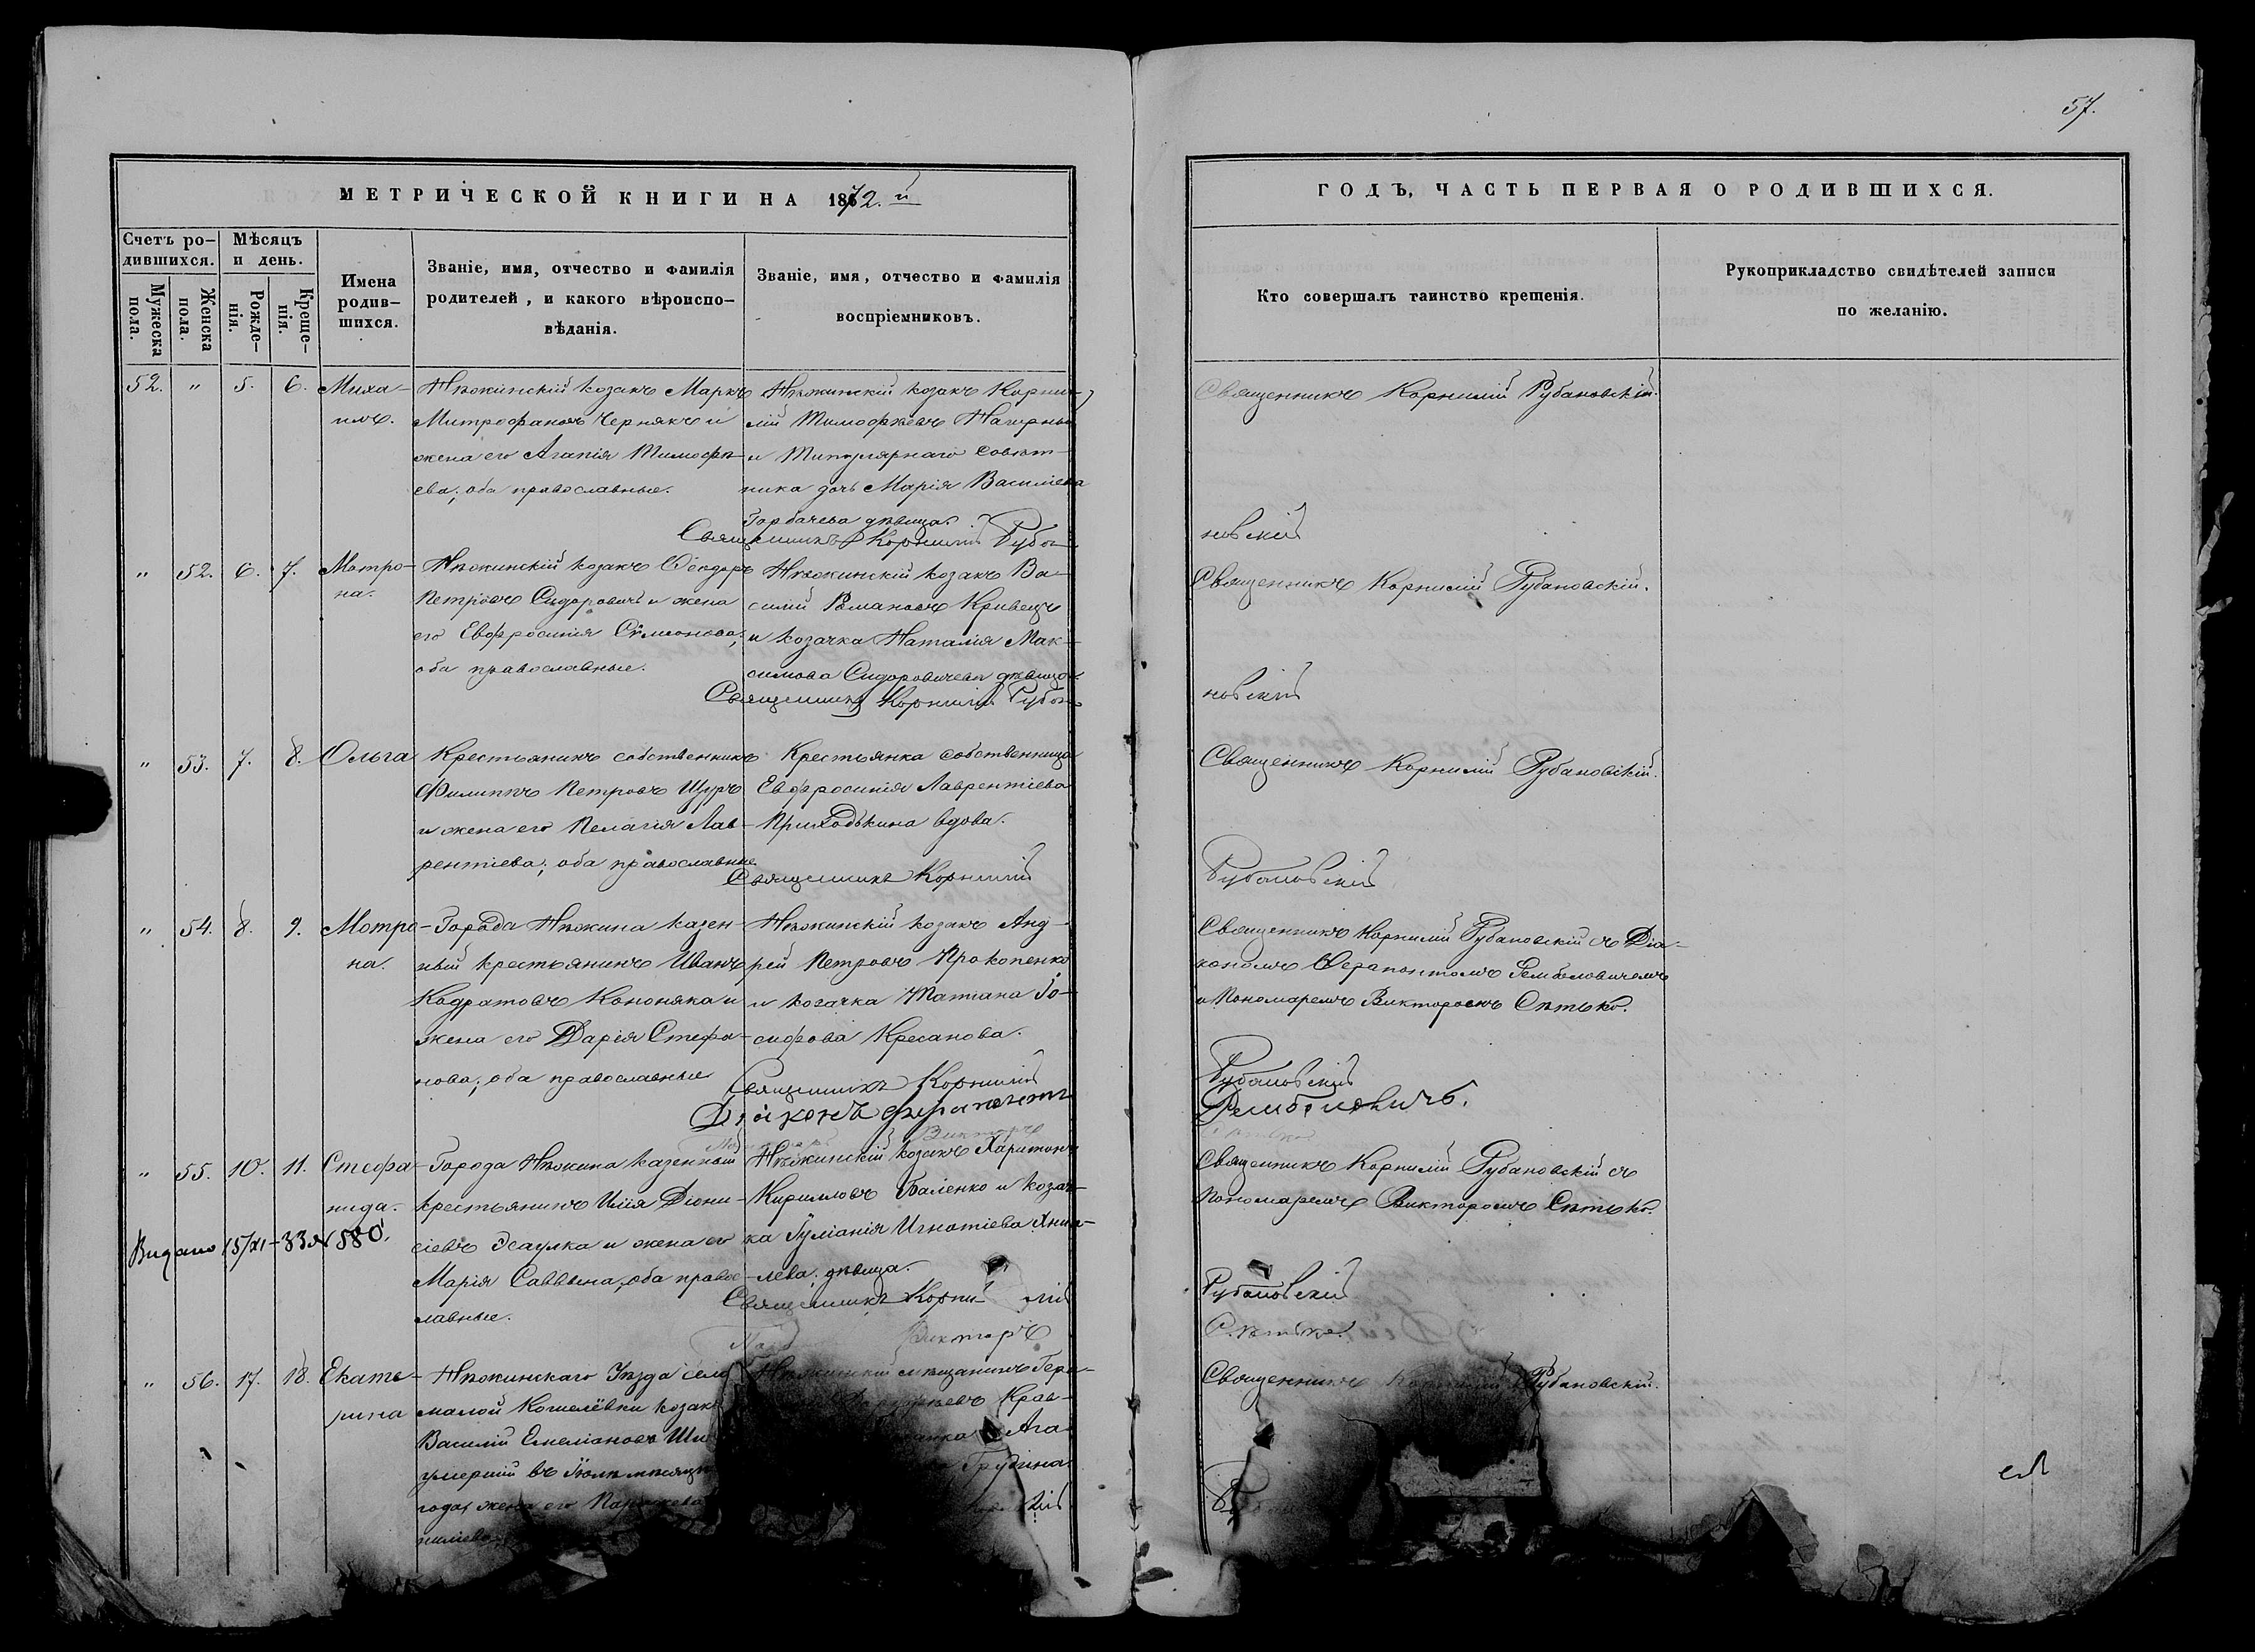 57.
МЕТРИЧЕСКОЙ КНИГИ НА 1872.й
ГОДЪ, ЧАСТЬ ПЕРВАЯ О РОДИВШИХСЯ.
Счетъ ро-
дившихся.
Мужеска
пола.
Женска
пола.
Мѣсяцъ
и день.
Рожде-
нія.
Креще-
нія.
Имена
родив-
шихся.
Званіе, имя, отчество и фамилія
родителей, и какого вѣроиспо-
вѣданія.
Званіе, имя, отчество и фамилія
воспріемниковъ.
Кто совершалъ таинство крещенія.
Рукоприкладство свидѣтелей записи
по желанію.
52. " 5. 6.
Миха-
илъ.
Нѣжинскій козакъ Маркъ
Митрофановъ Чернякъ и
жена его Агапія Тимофѣ-
ева; оба православные.
Нѣжинскій козакъ Корни-
лій Тимофѣевъ Нагирный
и Титулярнаго Совѣт-
ника дочь Марія Василіева
Горбачева дѣвица.
Священникъ Корнилій Рубановскій.
Священникъ Корнилій Руба-
новскій
" 52. 6. 7.
Мотро-
на.
Нѣжинскій козакъ Ѳеодоръ
Петровъ Сидоровичъ и жена
его Евфросинія Сѵмеонова;
оба православные.
Нѣжинскій козакъ Ва-
силій Романовъ Кривецъ
и козачка Наталія Мак-
симова Сидоровичева дѣвица.
Священникъ Корнилій Рубановскій.
Священникъ Корнилій Руба-
новскій
" 53. 7. 8.
Ольга
Крестьянинъ собственникъ
Филиппъ Петровъ Щуръ
и жена его Пелагія Лав-
рентіева; оба православные.
Крестьянка собственница
Евфросинія Лаврентіева
Приходькина вдова.
Священникъ Корнилій Рубановскій.
Священникъ Корнилій
Рубановскій
" 54. 8. 9.
Мотро-
на.
Города Нѣжина казен-
ный крестьянинъ Иванъ
Кодратовъ Кононяка и
жена его Дарія Стефа-
нова; оба православные
Нѣжинскій козакъ Анд-
рей Петровъ Прокопенко
и козачка Татіана Іо-
сифова Кресанова.
Священникъ Корнилій Рубановскій съ Діа-
кономъ Ѳерапонтомъ Гембаловичемъ
и Пономаремъ Викторомъ Сѣтько.
Священникъ Корнилій
Рубановскій
Діаконъ
Викторъ
" 55. 10. 11.
Стефа-
нида.
Города Нѣжина казенный
крестьянинъ Илія Діони-
сіевъ Эсаулка и жена его
Марія Саввина, оба право-
славные.
Нѣжинскій козакъ Харитонъ
Кирилловъ Баленко и козач-
ка Іуліанія Игнатіева
лева; дѣвица.
Священникъ Корнилій Рубановскій съ
Пономаремъ Викторомъ Сѣтько.
Видано 15/XI-33 № 580.
Священникъ Корнилій
Рубановскій
Викторъ
Сѣтько.
" 56. 17. 18.
Екате-
рина
Нѣжинскаго Уѣзда села
малой Кошелёвки козакъ
Василій Емеліановъ
умершій въ Іюлѣ мѣсяцѣ
года, жена его
Нѣжинскій мѣщанинъ
Крав-
Ага-
Грубина.
Священникъ Корнилій Рубановскій.